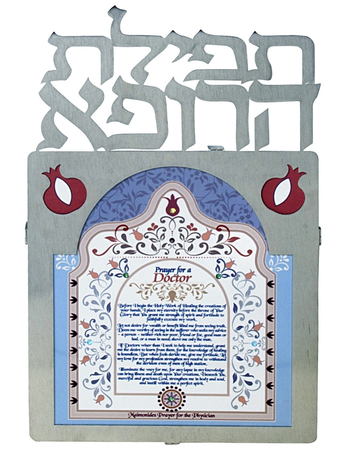 תפילת
הרופא
Prayer for a
Doctor
Before I begin the Holy Work of Healing the creations of
your hands, I place my entreaty before the throne of Your
Glory that You grant me strength of spirit and fortitude to
faithfully execute my work.
Let not desire for wealth or benefit blind me from seeing truth.
Deem me worthy of seeing in the sufferer who seeks my advice
a person - neither rich nor poor. Friend or foe, good man or
bad, or a man in need, show me only the man.
If Doctors wiser than I seek to help me understand, grant
me the desire to learn from them, for the knowledge of healing
is boundless. But when fools deride me, give me fortitude. Let
my love for my profession strengthen my resolve to withstand
the derision even of men of high station.
Illuminate the way for me, for any lapse in my knowledge
can bring illness and death upon Your creations. Beseech You,
merciful and gracious God, strengthen me in body and soul,
and instill within me a perfect spirit.
Maimonides Prayer for the Physician